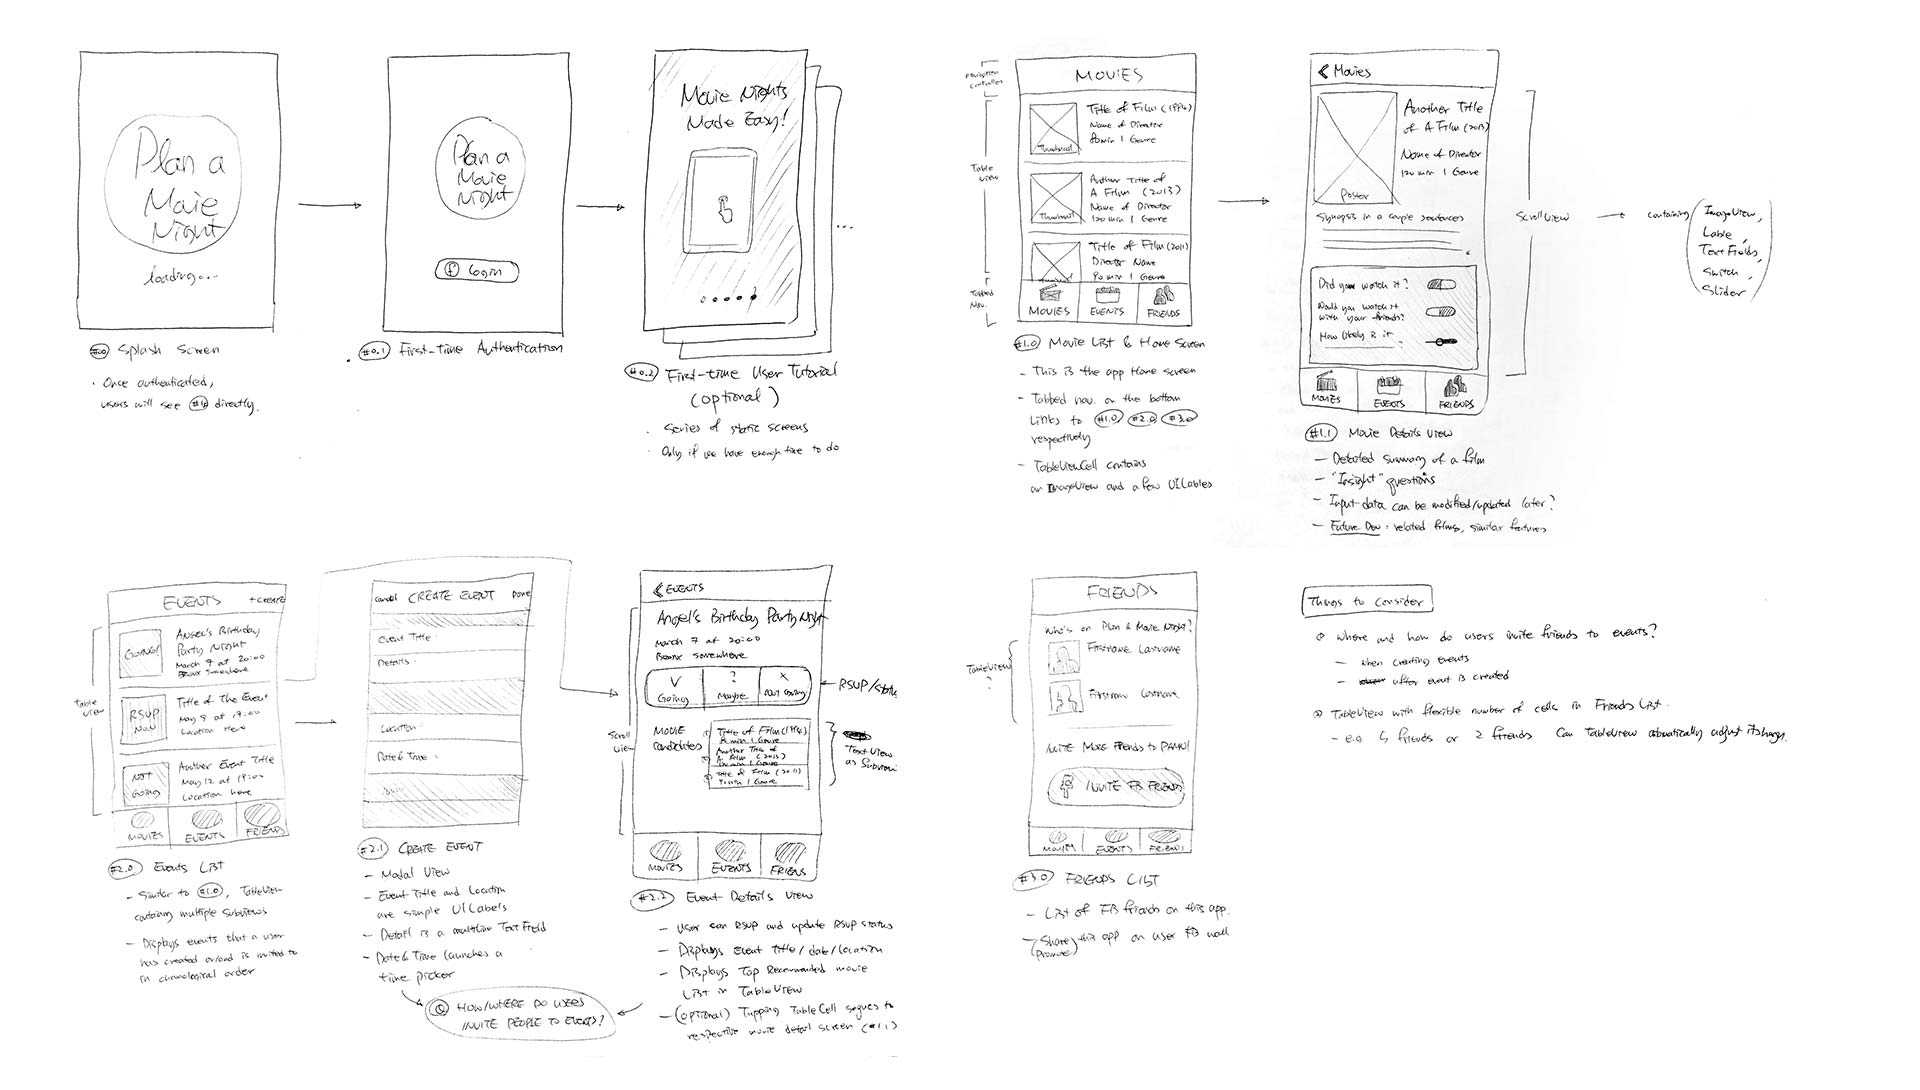 Plan a
Movie
Night
loading...
#0 Splash Screen
· Once authenticated,
users will see #1.0 directly.
Plan a
Movie
Night
f Login
#0.1 First-Time Authentication
Movie Nights
Made Easy!
...
#0.2 First-time User Tutorial
(optional)
· Series of static screens
· Only if we have enough time to do
Navigation
Controller
Table
View
Tabbed
Nav.
MOVIES
Title of Film (1994)
Name of Director
min | Genre
Thumbnail
Another Title of
A Film (2013)
Name of Director
120 min | Genre
Thumbnail
Title of Film (2011)
Director Name
90 min | Genre
MOVIES EVENTS FRIENDS
#1.0 Movie List & Home Screen
- This is the app Home screen
- Tabbed nav. on the bottom
Links to #1.0, #2.0, #3.0
respectively
- TableViewCell contains
an ImageView and a few UILables
< Movies
Another Title
of A Film (2013)
Name of Director
120 min | Genre
Poster
Synopsis in a couple sentences
Did you watch it?
Would you watch it
with your friends?
How likely is it
MOVIES EVENTS FRIENDS
ScrollView
containing
ImageView,
Lable,
TextFields,
Switch,
Slider
#1.1 Movie Details View
- Detailed summary of a film
- "Insight" questions
- Input data can be modified/updated later?
- Future Dev: related films, similar features
Table
View
EVENTS +CREATE
GOING!
Angel's Birthday
Party Night
March 7 at 20:00
Bronx Somewhere
RSVP
Now
Title of The Event
May 5 at 19:00
Location Here
NOT
Going
Another Event Title
May 12 at 19:00
Location here
MOVIES EVENTS FRIENDS
#2.0 Events List
- Similar to #1.0, TableView
containing multiple Subviews
- Displays events that a user
has created or/and is invited to
in chronological order
Cancel CREATE EVENT Done
Event Title:
Details:
Location:
Date & Time:
#2.1 CREATE EVENT
- Modal View
- Event Title and Location
are simple UILabels
- Detail is a multiline TextField
- Date & Time launches a
time picker
Q HOW/WHERE DO USERS
INVITE PEOPLE TO EVENTS?
Scroll
View
< EVENTS
Angel's Birthday Party Night
March 7 at 20:00
Bronx Somewhere
V Going
? Maybe
X Not Going
RSVP/status
MOVIE
Candidates
Title of Film (1994)
min | Genre
Another Title of
A Film (2013)
min | Genre
Title of Film (2011)
min | Genre
TextView
as Subview
MOVIES EVENTS FRIENDS
#2.2 Event Details View
- User can RSVP and update RSVP status
- Displays Event Title/date/location
- Displays Top Recommended movie
List in TableView
- (optional) Tapping TableCell segues to
respective movie detail screen (#1.1)
TableView
?
FRIENDS
Who's on Plan A Movie Night?
Firstname Lastname
Firstname Lastname
INVITE MORE FRIENDS to PAMN!
f INVITE FB FRIENDS
MOVIES EVENTS FRIENDS
#3.0 FRIENDS LIST
- List of FB friends on this app.
- (Share) this app on user FB wall
(Promote)
Things to Consider
Where and how do users invite friends to events?
- when creating events
- after event is created
TableView with flexible number of cells in Friends List.
- e.g. 5 friends or 2 friends Can TableView automatically adjust its